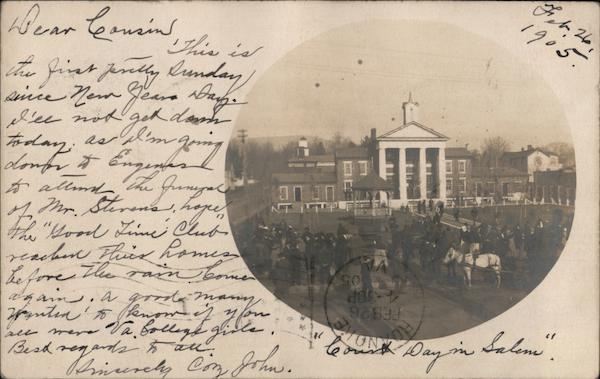 Dear Cousin
Feb. 26,
1905.
"This is
the first pretty Sunday
since New Years Day.
I'ee not get down
today, as I'm going
down to Eugenes
to attend the funeral
of Mr. Stevens, hope
the "Good Time Club"
reached their homes
before the rain. Come
again. a good many
wanted to know if you
all were "a College girls.
Best regards to all.
Sincerely Coz John.
"Court Day in Salem".
ROANOKE
FEB 26
VA.